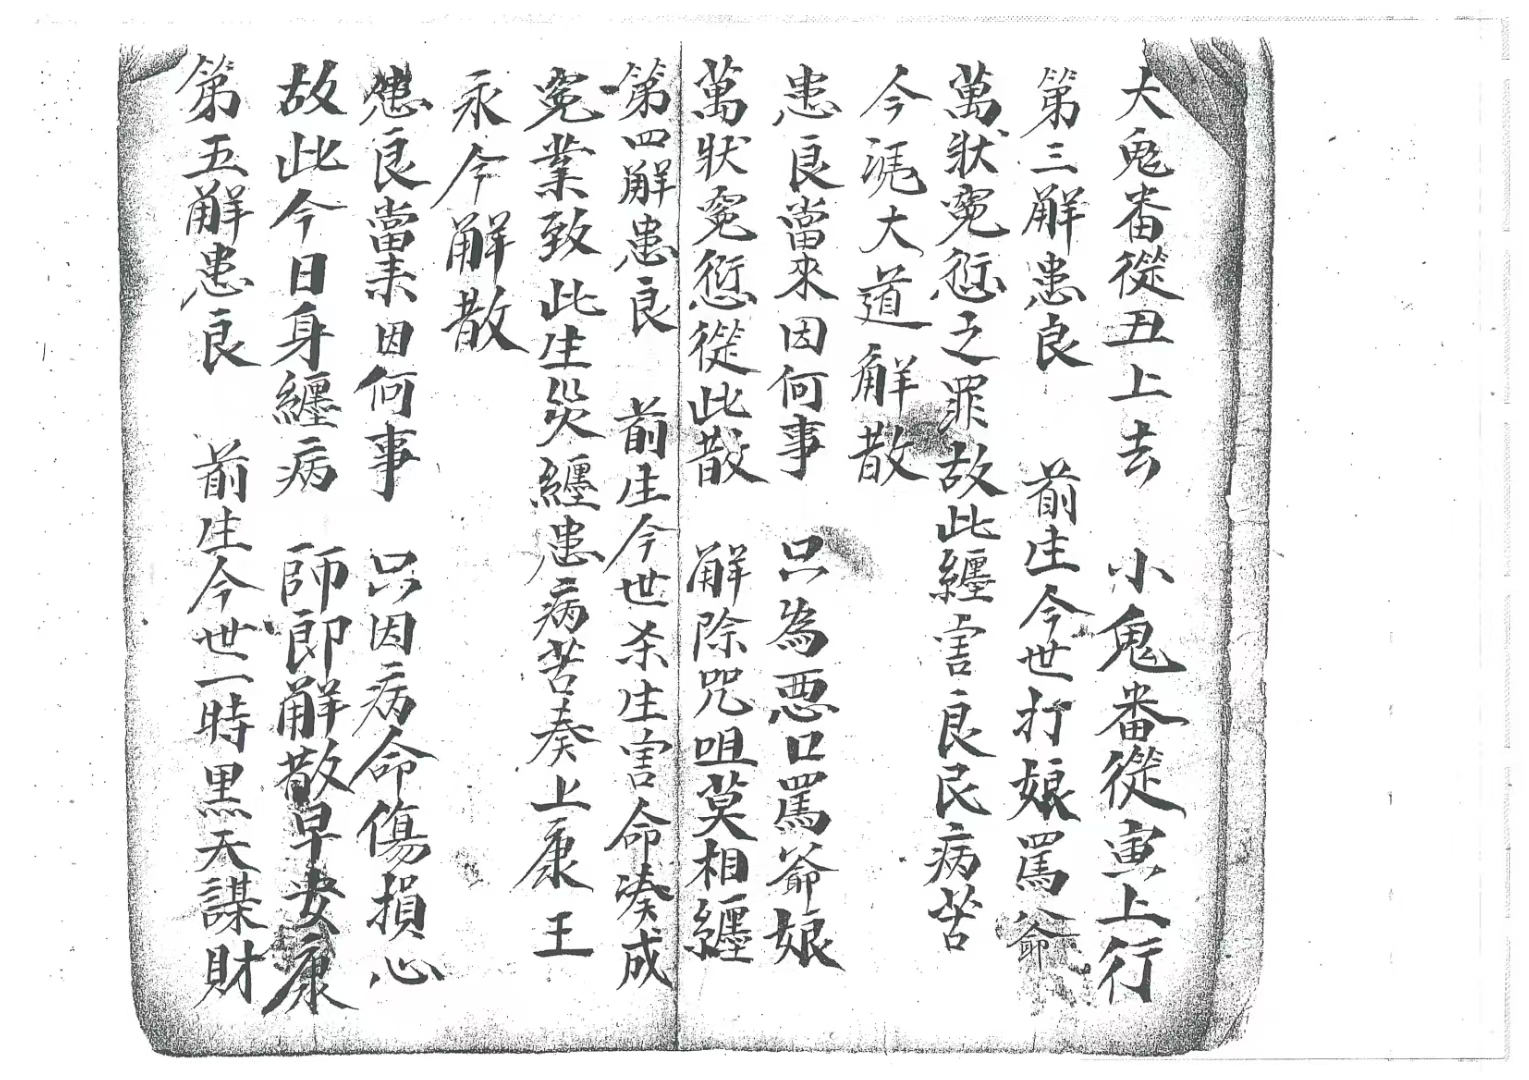 大鬼番從丑上去　小鬼番從寅上行
第三解患良　前生今世打娘罵爺
萬狀冤愆之罪故此纏害良民病苦
今 大道解散
患良當來因何事　只為惡口罵爺娘
萬狀冤愆從此散　解除咒咀莫相纏
第四解患良　前生今世杀生害命凑成
冤業致此生災纏患病苦奏上康王
永今解散
患良當来因何事　只因病命傷損心
故此今日身纏病　師郎解散早安康
第五解患良　前生今世一時黑天謀財